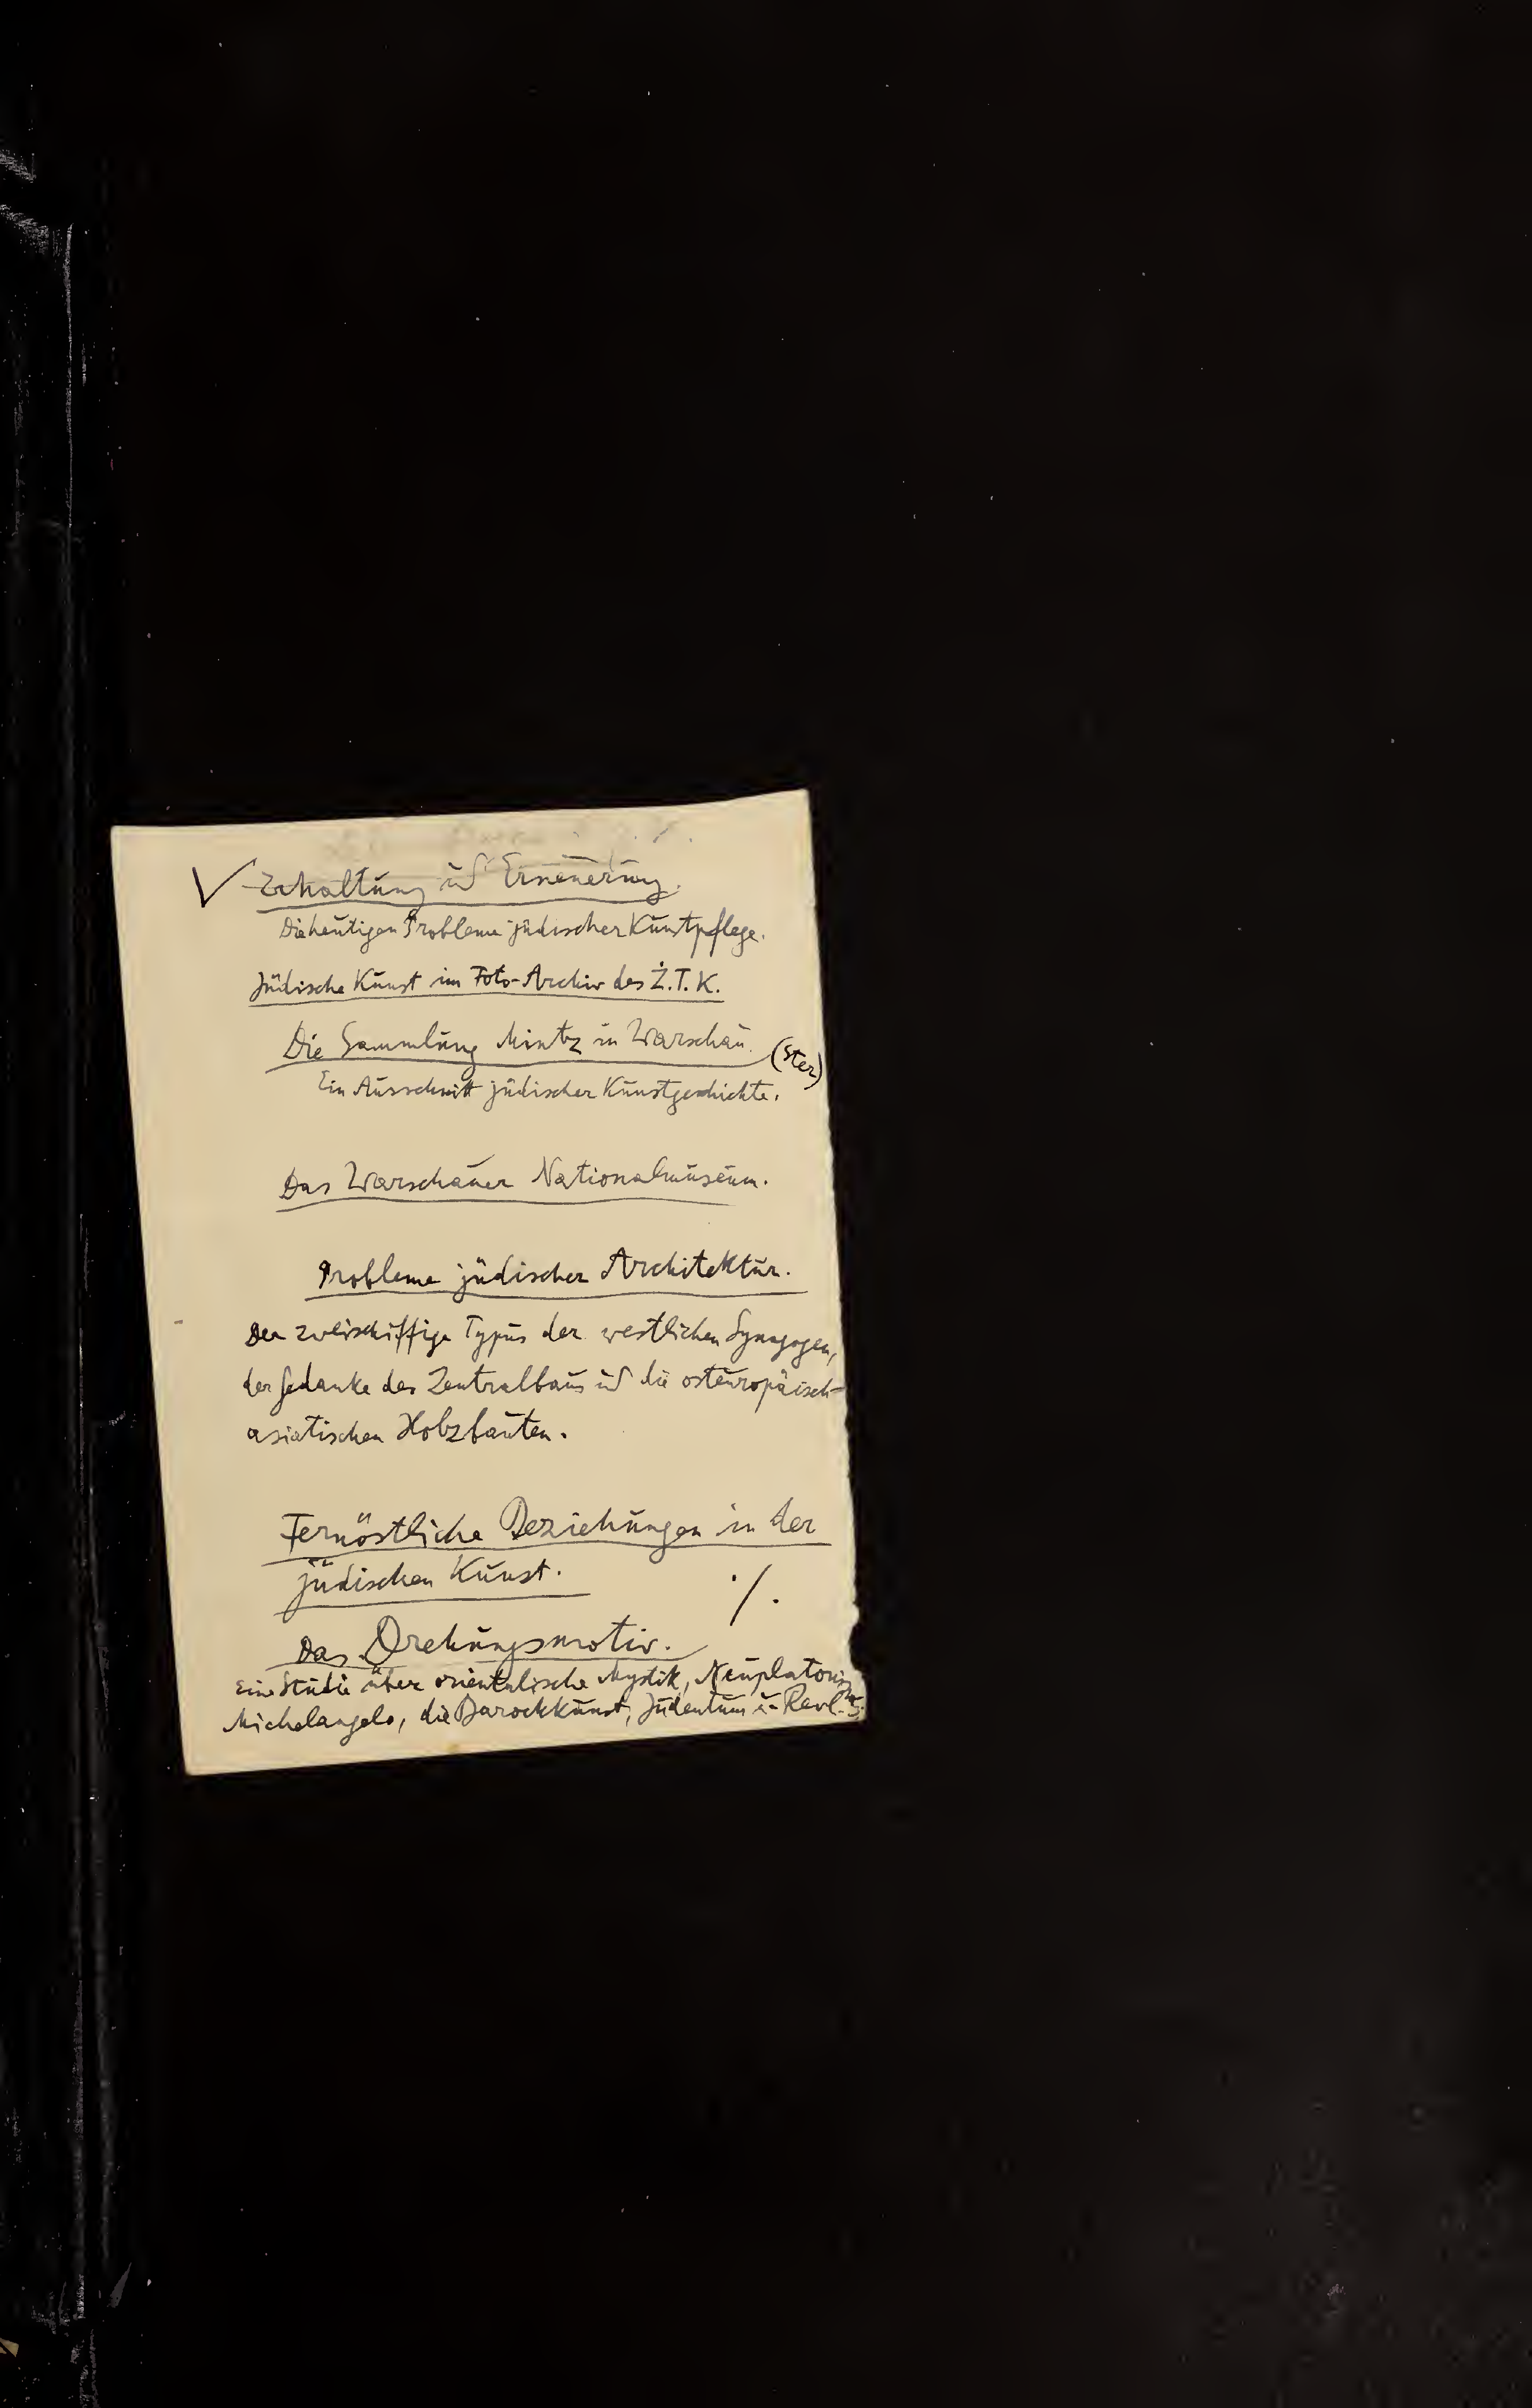 ✓ Erhaltung ud Erneuerung.
Die heutigen Probleme jüdischer Kunstpflege.
Jüdische Kunst im Foto-Archiv des Ż.T.K.
Die Sammlung Mintz in Warschau. (Ster)
Ein Ausschnitt jüdischer Kunstgeschichte.
Das Warschauer Nationalmuseum.
Probleme jüdischer Architektur.
Der zweischiffige Typus der westlichen Synagogen,
der Gedanke des Zentralbaus ud die osteuropäisch-
asiatischen Holzbauten.
Fernöstliche Beziehungen in der
jüdischen Kunst.
./.
Das Drehungsmotiv.
Eine Studie über orientalische Mystik, Neuplatonism
Michelangelo, die Barockkunst, Judentum u.